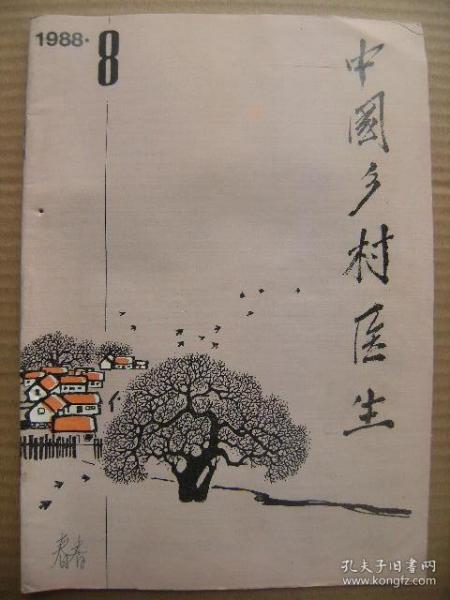 1988·8
中国乡村医生
孔夫子旧书网
www.kongfz.com